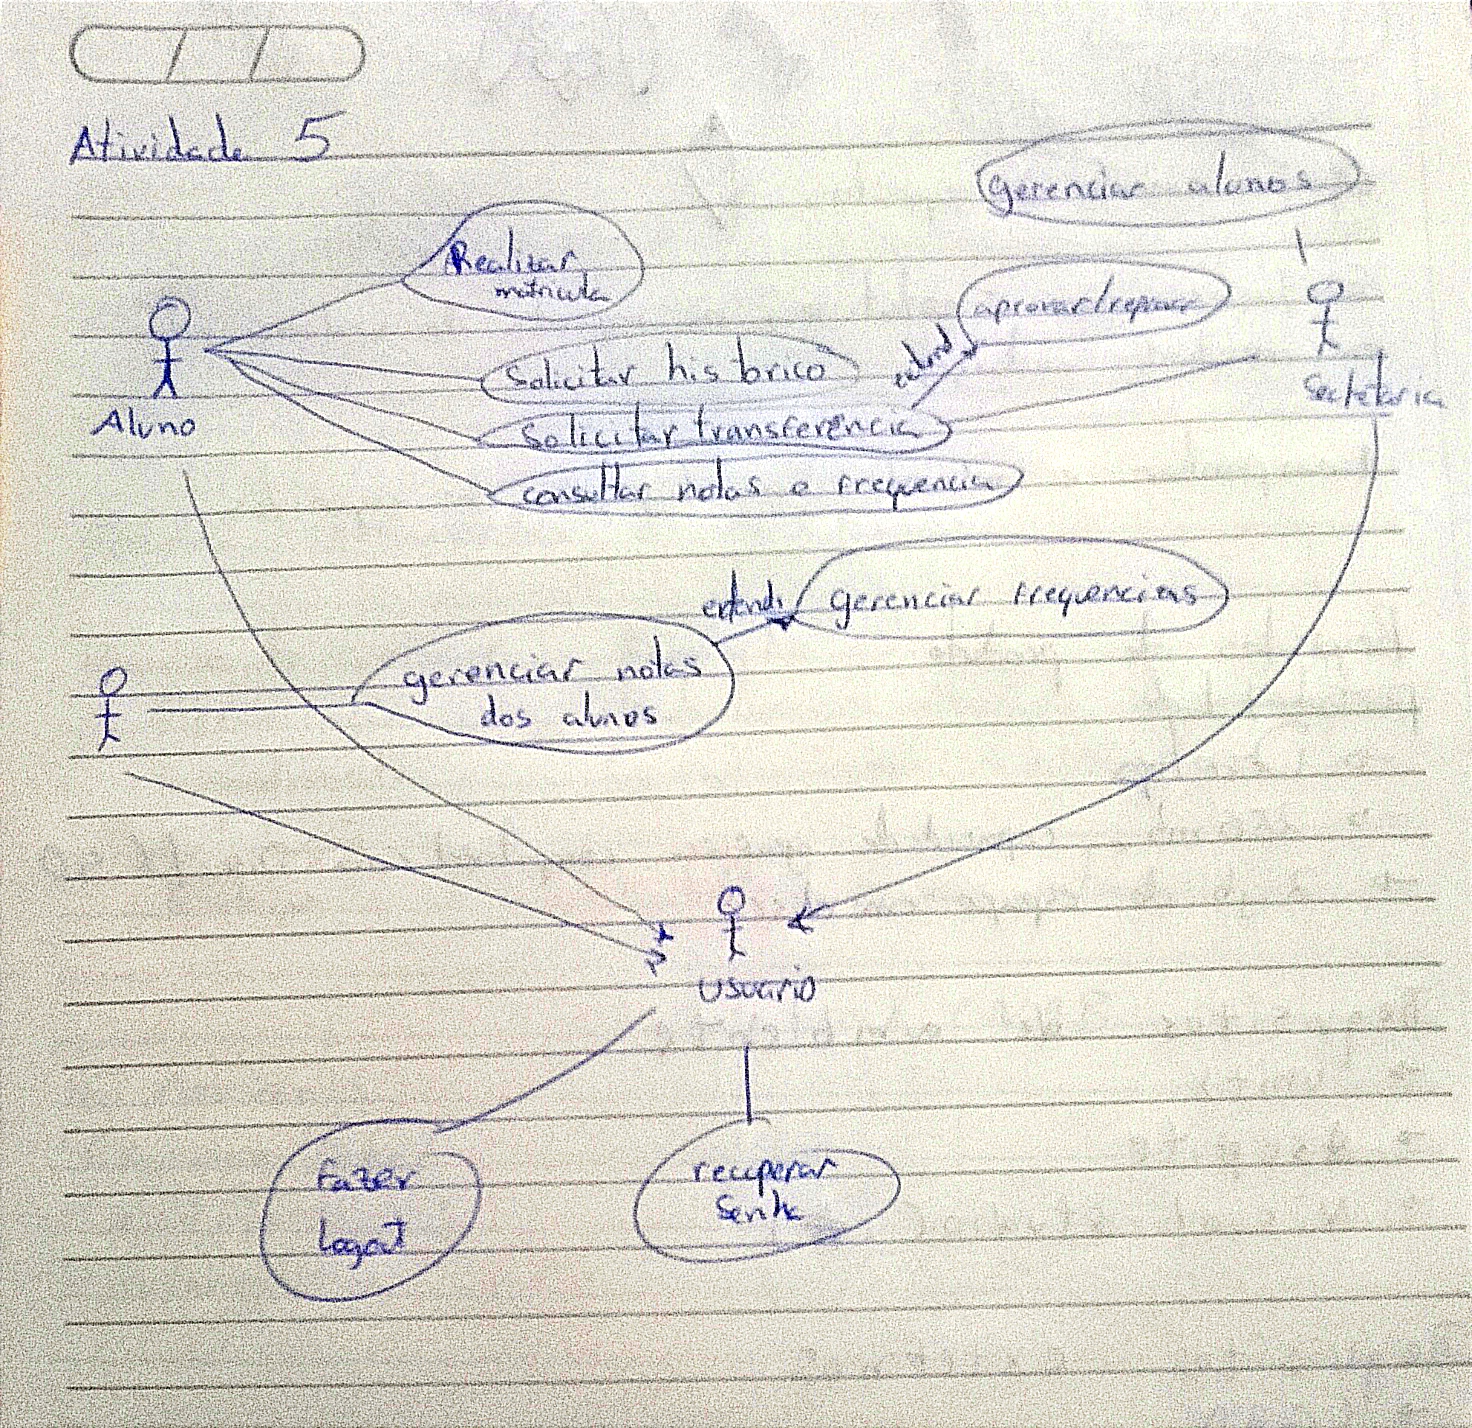 Atividade 5
gerenciar alunos
Realizar
matricula
aprovar/reprovar
Solicitar historico
extend
Secretaria
Aluno
Solicitar transferência
consultar notas e frequencia
extends
gerenciar frequencias
gerenciar notas
dos alunos
Usuario
Fazer
logout
recuperar
Senha